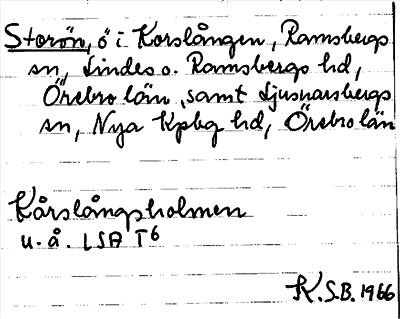 Storön, ö i Korslången, Ramsbergs
sn, Lindes o. Ramsbergs hd,
Örebro län, samt Ljusnarsbergs
sn, Nya Kpbg hd, Örebro län
Kårslångsholmen
u. å. LSA T6
K.S.B. 1966